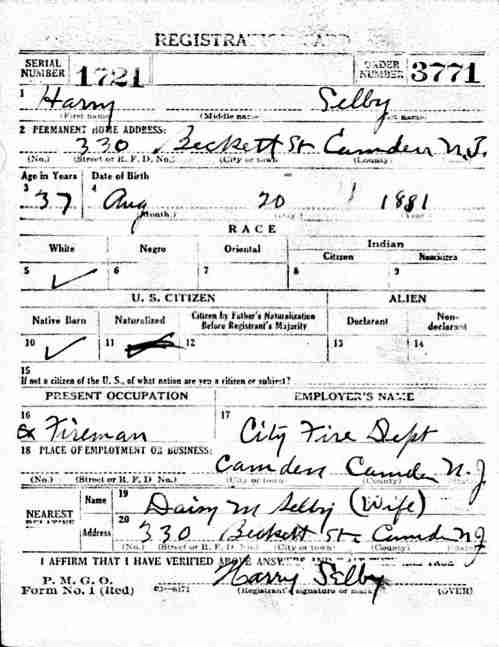 REGISTRATION CARD
SERIAL NUMBER 1721 ORDER NUMBER 3771
1 Harry Selby
(First name) (Middle name)
2 PERMANENT HOME ADDRESS:
330 Beckett St Camden N.J.
(No.) (Street or R. F. D. No.) (City or town) (County)
Age in Years Date of Birth
3 37 4 Aug 20 1881
(Month.) (Day.) (Year.)
RACE
White Negro Oriental Indian
Citizen Noncitizen
5 ✓ 6 7 8 9
U. S. CITIZEN ALIEN
Native Born Naturalized Citizen by Father's Naturalization Before Registrant's Majority Declarant Non-declarant
10 ✓ 11 12 13 14
15
If not a citizen of the U. S., of what nation are you a citizen or subject?
PRESENT OCCUPATION EMPLOYER'S NAME
16 Fireman 17 City Fire Dept
18 PLACE OF EMPLOYMENT OR BUSINESS:
Camden Camden N.J
(No.) (Street or R. F. D. No.) (City or town) (County)
NEAREST RELATIVE Name 19 Daisy M Selby (Wife)
Address 20 330 Beckett St Camden NJ
(No.) (Street or R. F. D. No.) (City or town) (County)
I AFFIRM THAT I HAVE VERIFIED ABOVE ANSWERS AND THAT THEY ARE TRUE
P. M. G. O.
Form No. 1 (Red) Harry Selby
(Registrant's signature or mark) (OVER)